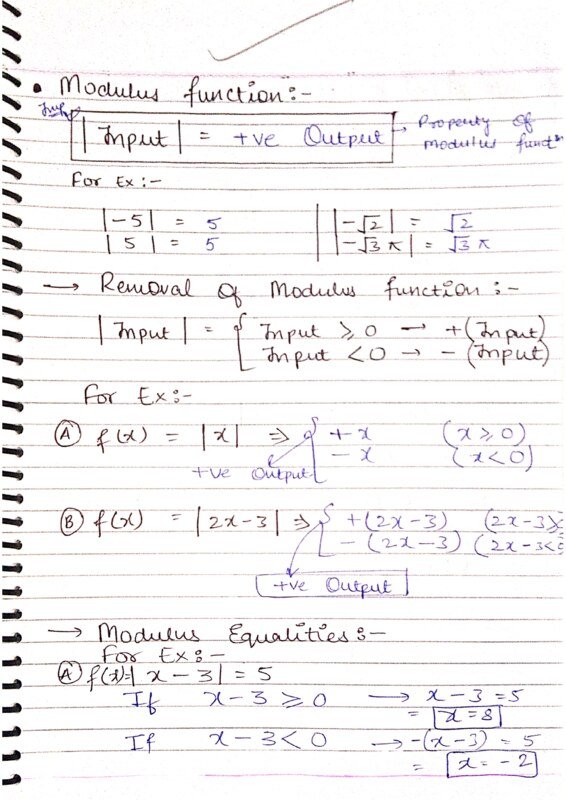 • Modulus function:-
Imp
|Input| = +ve Output → Property of modulus functn
For Ex:-
|-5| = 5 || |-√2| = √2
|5| = 5 || |-√3 π| = √3 π
→ Removal of Modulus function:-
|Input| = { Input ≥ 0 → +(Input)
Input < 0 → -(Input)
For Ex:-
(A) f(x) = |x| ⇒ { +x (x ≥ 0)
-x (x < 0)
+ve Output
(B) f(x) = |2x-3| ⇒ { +(2x-3) (2x-3≥
-(2x-3) (2x-3<0
+ve Output
→ Modulus Equalities:-
For Ex:-
(A) f(x)=|x-3| = 5
If x-3 ≥ 0 → x-3 = 5
= x = 8
If x-3 < 0 → -(x-3) = 5
= x = -2